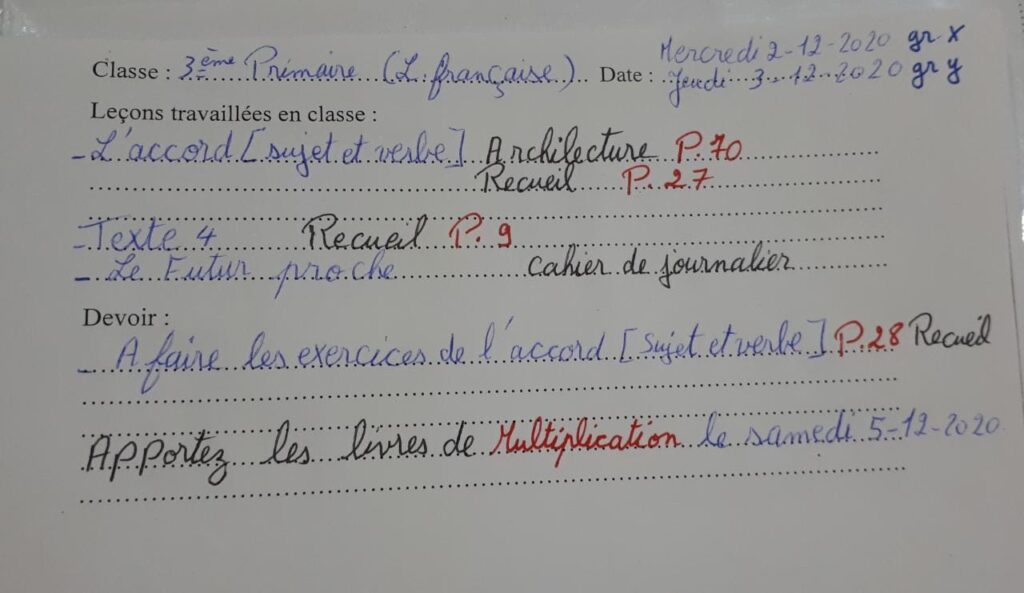 Mercredi 2-12-2020 gr x
Classe : 3ème Primaire (L. française) Date : Jeudi 3-12-2020 gr y
Leçons travaillées en classe :
- L'accord [sujet et verbe] Architecture P.70
Recueil P.27
- Texte 4 Recueil P.9
- Le Futur proche cahier de journalier
Devoir :
- A faire les exercices de l'accord [sujet et verbe] P.28 Recueil
Apportez les livres de Multiplication le samedi 5-12-2020